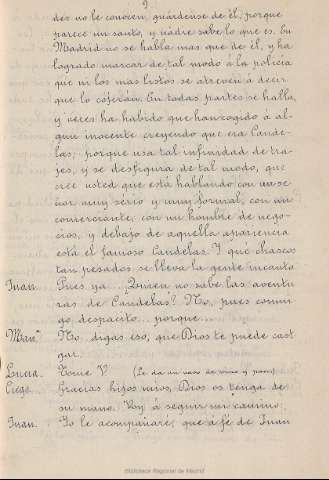 9.
des no le conocen, guárdense de él, porque
parece un santo, y nadie sabe lo que es. En
Madrid no se habla mas que de él, y ha
logrado marcar de tal modo á la policia
que ni los mas listos se atreven á decir
que lo cojerán. En todas partes se halla,
y veces ha habido que han cogido á al-
gun inocente creyendo que era Cande-
las; porque usa tal infinidad de tra-
jes, y se desfigura de tal modo, que
cree usted que está hablando con un se-
ñor muy sério y muy formal, con un
comerciante, con un hombre de nego-
cios, y debajo de aquella apariencia
está el famoso Candelas. Y qué chascos
tan pesados se lleva la gente incauta
Juan. Pues ya... Quien no sabe las aventu
ras de Candelas? No, pues conmi-
go, despacito... porque...
Man.ª No digas eso, que Dios te puede cast
gar.
Lucia. Tome V. (Le da un vaso de vino y pan)
Ciego. Gracias hijos mios, Dios os tenga de
su mano. Voy á seguir mi camino.
Juan. Yo le acompañaré, que á fé de Juan
Biblioteca Regional de Madrid